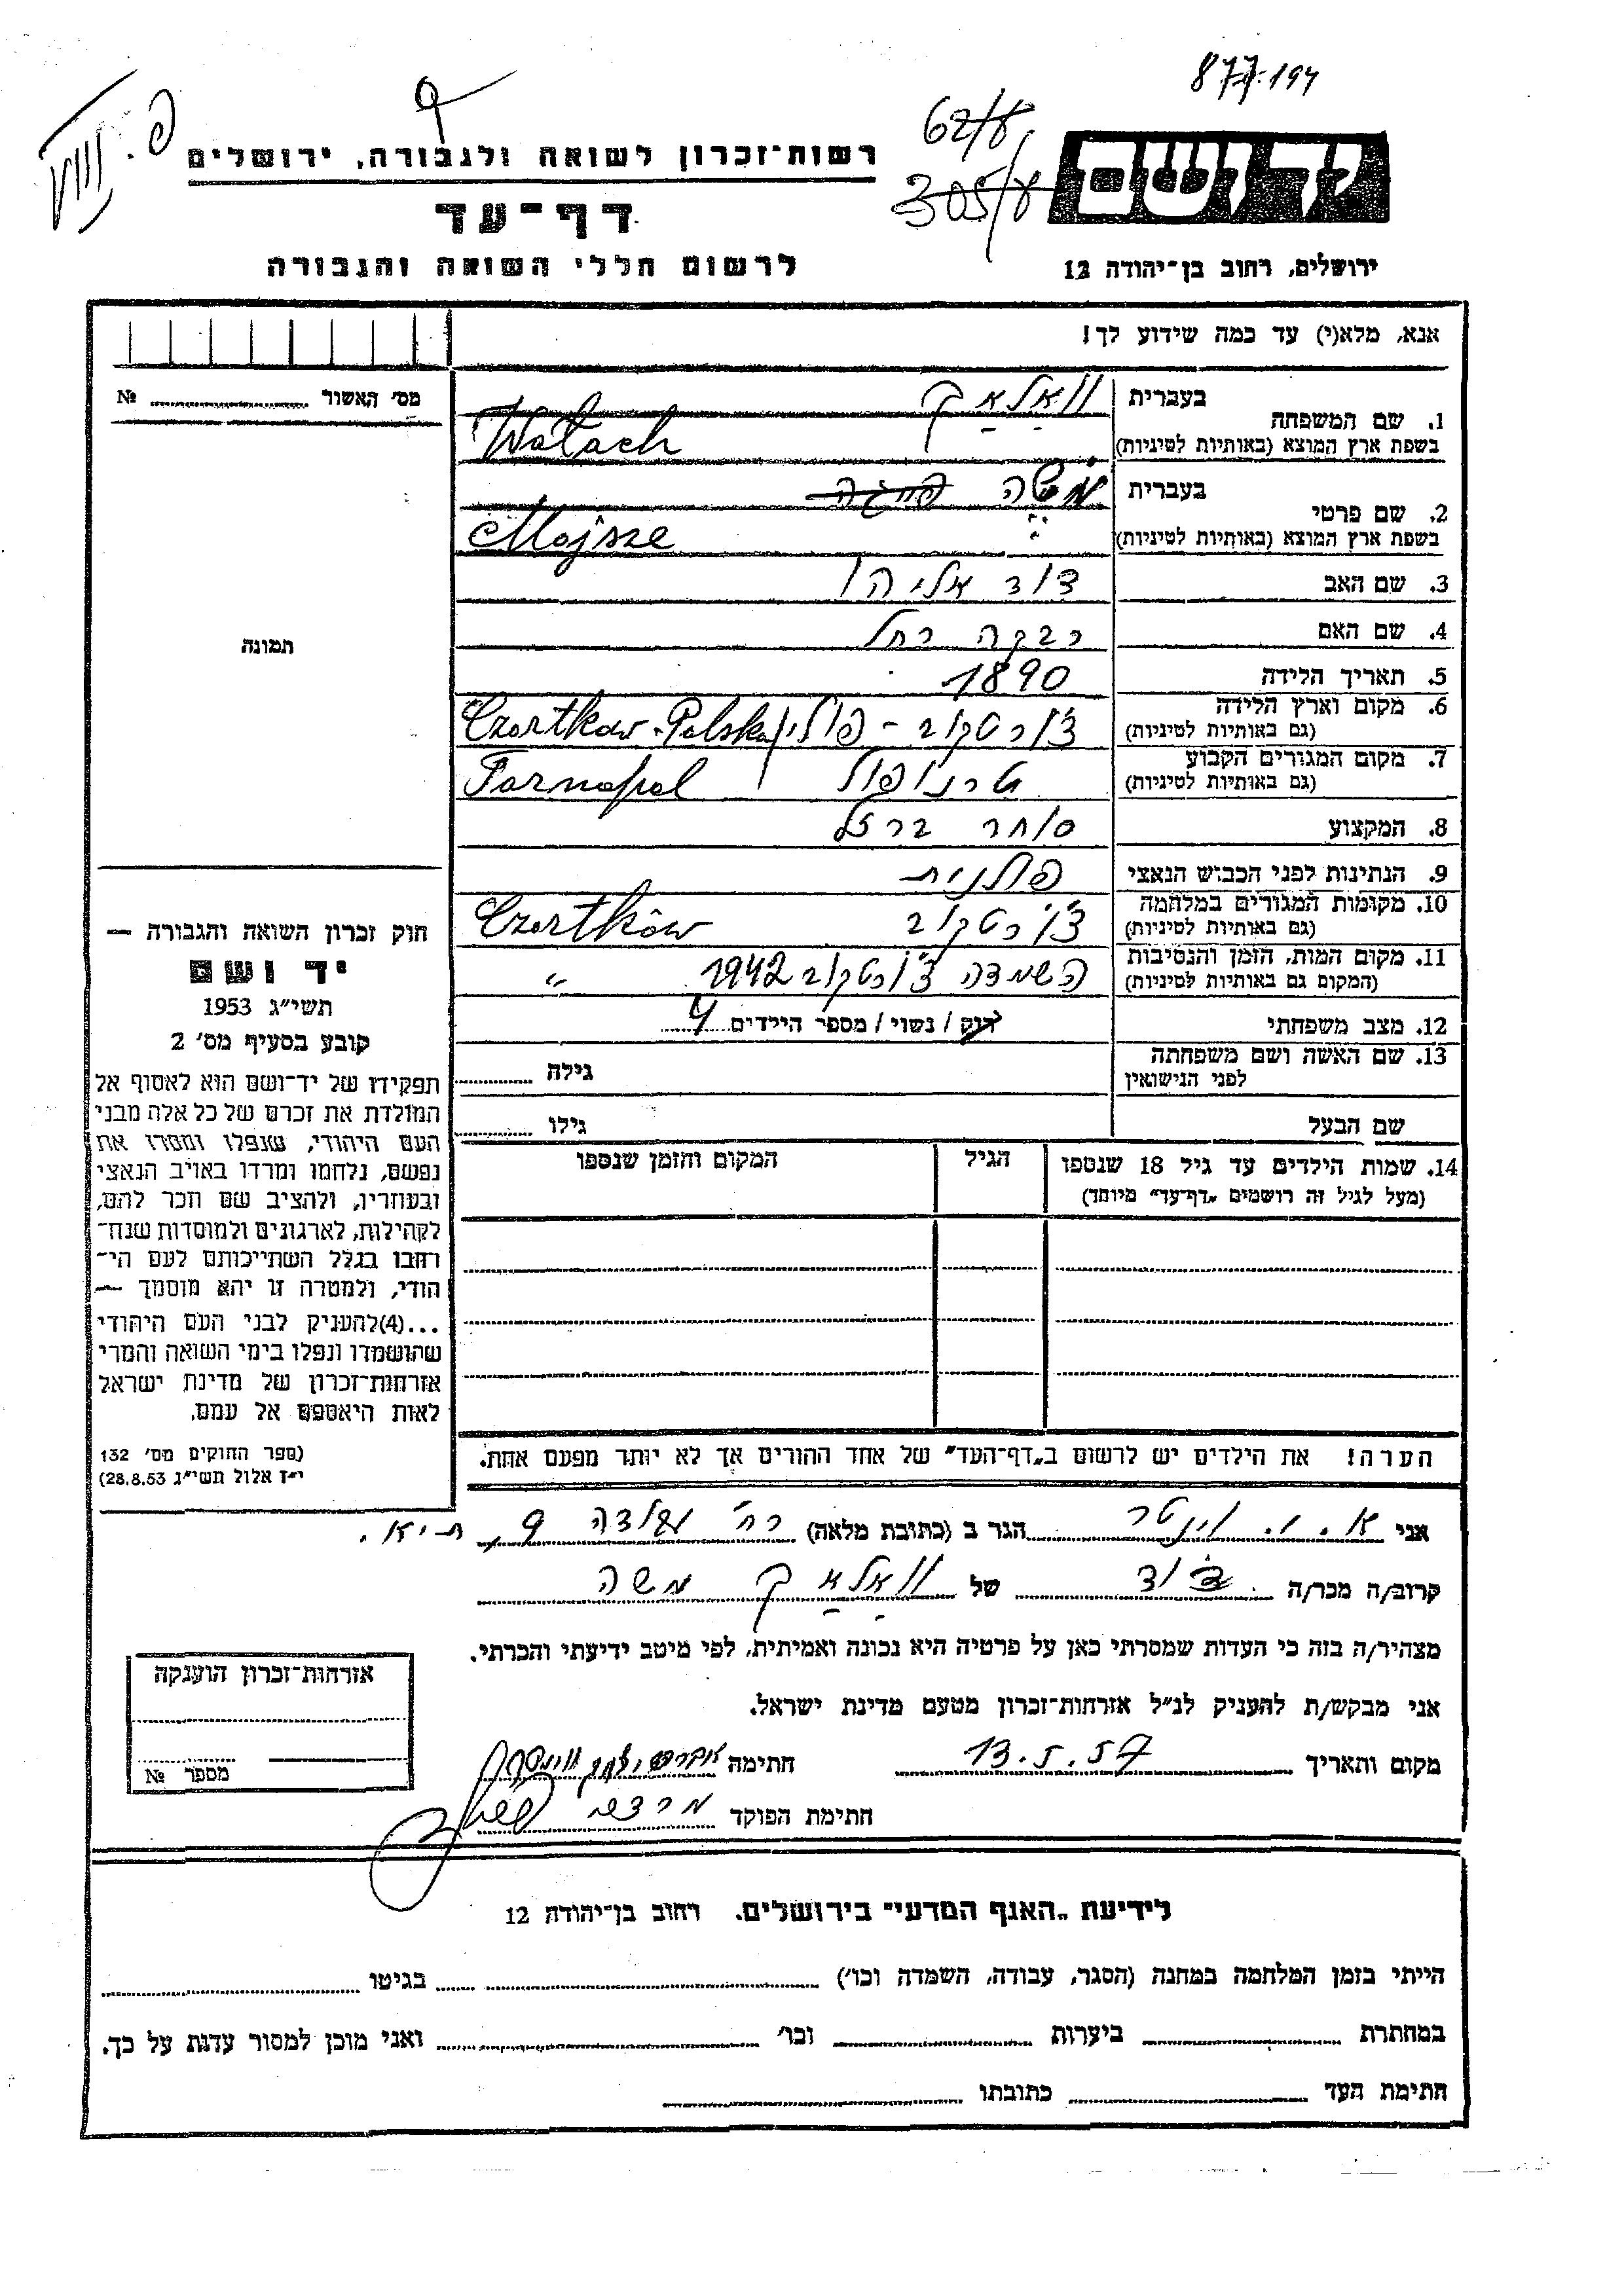 877.194
62/ע
305/ע
יד ושם
רשות־זכרון לשואה ולגבורה, ירושלים
דף־עד
לרשום חללי השואה והגבורה
ירושלים, רחוב בן־יהודה 12
אנא, מלא(י) עד כמה שידוע לך!
מס׳ האשור № 
תמונה
1. שם המשפחה
בעברית וואַלאַך
בשפת ארץ המוצא (באותיות לטיניות) Wałach
2. שם פרטי
בעברית משה
בשפת ארץ המוצא (באותיות לטיניות) Mojsze
3. שם האב דוד אליהו
4. שם האם רבקה רחל
5. תאריך הלידה 1890
6. מקום וארץ הלידה צ׳ורטקוב - פולין Czortkow-Polska
(גם באותיות לטיניות)
7. מקום המגורים הקבוע טרנופול Tarnopol
(גם באותיות לטיניות)
8. המקצוע סוחר ברזל
9. הנתינות לפני הכבוש הנאצי פולנית
10. מקומות המגורים במלחמה צ׳ורטקוב Czortków
(גם באותיות לטיניות)
11. מקום המות, הזמן והנסיבות השמדה צ׳ורטקוב 1942 "
(המקום גם באותיות לטיניות)
12. מצב משפחתי רוק / נשוי / מספר הילדים 4
13. שם האשה ושם משפחתה גילה
לפני הנישואין
שם הבעל גילו
14. שמות הילדים עד גיל 18 שנספו הגיל המקום והזמן שנספו
(מעל לגיל זה רושמים „דף־עד" מיוחד)
הערה! את הילדים יש לרשום ב„דף־העד" של אחד ההורים אך לא יותר מפעם אחת.
חוק זכרון השואה והגבורה —
יד ושם
תשי״ג 1953
קובע בסעיף מס׳ 2
תפקידו של יד־ושם הוא לאסוף אל
המולדת את זכרם של כל אלה מבני
העם היהודי, שנפלו ומסרו את
נפשם, נלחמו ומרדו באויב הנאצי
ובעוזריו, ולהציב שם וזכר להם,
לקהילות, לארגונים ולמוסדות שנח־
רבו בגלל השתייכותם לעם הי־
הודי, ולמטרה זו יהא מוסמך —
...(4)להעניק לבני העם היהודי
שהושמדו ונפלו בימי השואה והמרי
אזרחות־זכרון של מדינת ישראל
לאות היאספם אל עמם.
(ספר החוקים מס׳ 132
י״ז אלול תשי״ג 28.8.53)
אני א. י. וינטר הגר ב (כתובת מלאה) רח׳ 9, ת״א.
קרוב/ה מכר/ה של וואַלאַך משה
מצהיר/ה בזה כי העדות שמסרתי כאן על פרטיה היא נכונה ואמיתית, לפי מיטב ידיעתי והכרתי.
אני מבקש/ת להעניק לנ״ל אזרחות־זכרון מטעם מדינת ישראל.
מקום ותאריך 13.5.57 חתימה
חתימת הפוקד מרדכי
אזרחות־זכרון הוענקה
מספר №
לידיעת „האגף המדעי" בירושלים. רחוב בן־יהודה 12
הייתי בזמן המלחמה במחנה (הסגר, עבודה, השמדה וכו׳) בגיטו
במחתרת ביערות וכו׳ ואני מוכן למסור עדות על כך.
חתימת העד כתובתו